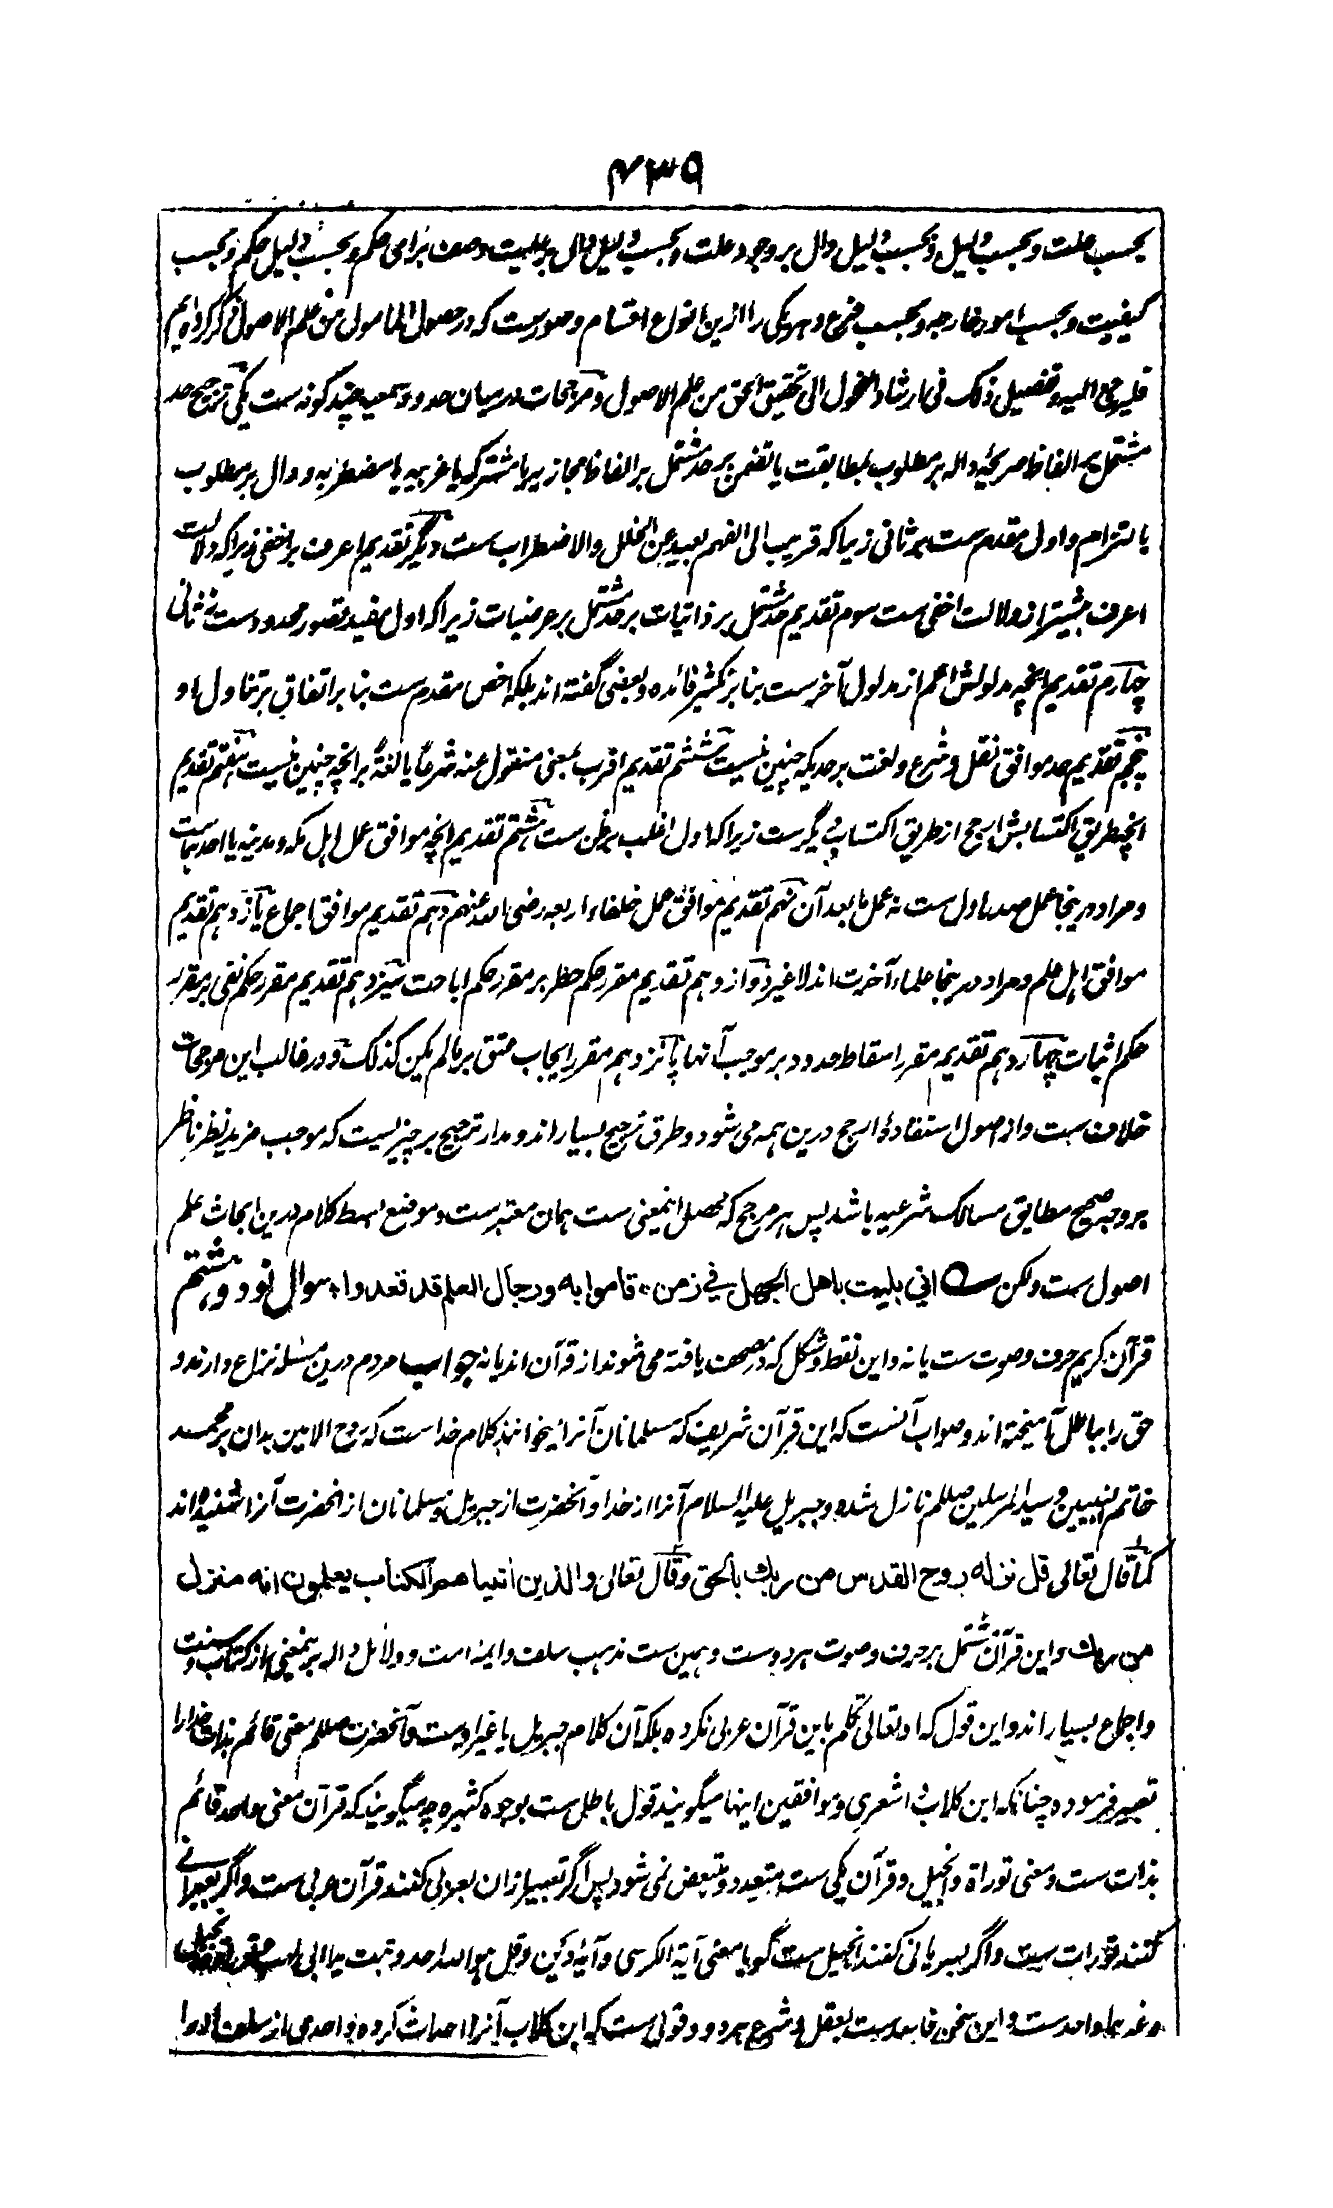 ۴۳۹
بحسب علت و بحسب دلیل و بحسب دلیل دال بر وجود علت و بحسب دلیل دال بر علیت وصف برای حکم و بحسب دلیل حکم و بحسب
کیفیت و بحسب امور خارجه و بحسب فرع و هر یکی را ازین انواع اقسام و صورست که در حصول المامول من علم الاصول ذکر کرده ایم
فلیرجع الیه و تفصیل ذلک فی ارشاد الفحول الی تحقیق الحق من علم الاصول و مرجحات درمیان حدود سمعیه چند گونه ست یکی ترجیح حد
مشتمل بر الفاظ صریحه داله بر مطلوب بمطابقت یا تضمن بر حد مشتمل بر الفاظ مجازیه یا مشترکه یا غریبه یا مضطربه و دال بر مطلوب
بالتزام و اول مقدم ست بر ثانی زیرا که قریب الی الفهم بعید عن الخلل والاضطراب ست دیگر تقدیم اعرف بر اخفی زیرا که دلالت
اعرف بیشتر از دلالت اخفی ست سوم تقدیم حد مشتمل بر ذاتیات بر حد مشتمل بر عرضیات زیرا که اول مفید تصور محدودست نه ثانی
چهارم تقدیم انچه مدلولش اعم از مدلول آخرست بنا بر تکثیر فائده و بعضی گفته اند بلکه اخص مقدم ست بنا بر اتفاق بر تناول او
پنجم تقدیم حد موافق نقل و شرع و لغت بر حدیکه چنین نیست ششم تقدیم اقرب بمعنی منقول عنه شرعاً یا لغةً بر انچه چنین نیست هفتم تقدیم
انچه طریق اکتسابش ارجح از طریق اکتساب دیگرست زیرا که اول اغلب بر ظن ست هشتم تقدیم انچه موافق عمل اهل مکه و مدینه یا احدهماست
و مراد درینجا عمل صدر اول ست نه عمل ما بعد آن نهم تقدیم موافق عمل خلفاء اربعه رضی الله عنهم دهم تقدیم موافق اجماع یازدهم تقدیم
موافق اهل علم و مراد درینجا علماء آخرت اند لا غیر دوازدهم تقدیم مقرر حکم حظر بر مقرر حکم اباحت سیزدهم تقدیم مقرر حکم نفی بر مقرر
حکم اثبات چهاردهم تقدیم مقرر اسقاط حدود بر موجب آنها پانزدهم مقرر ایجاب عتق بر ما لم یکن کذلک و در غالب این مرجحات
خلاف ست و از اصول استفاده ارجح درین همه می شود و طرق ترجیح بسیار اند و مدار ترجیح بر چیزیست که موجب مزید نظر ناظر
بر وجه صحیح مطابق مسالک شرعیه باشد پس هر مرجح که محصل اینمعنی ست همان معتبرست و موضع بسط کلام درین ابحاث علم
اصول ست ولکن انی بلیت باهل الجهل فی زمن ؛ قاموا به ورجال العلم قد قعدوا ؛ سوال نود و هشتم
قرآن کریم حرف و صوت ست یا نه و این نقط و شکل که در مصحف یافته می شوند از قرآن اند یا نه جواب مردم درین مسئله نزاع دارند و
حق را بباطل آمیخته اند و صواب آنست که این قرآن شریف که مسلمانان آنرا میخوانند کلام خدا ست که روح الامین بدان بر محمد
خاتم النبیین و سید المرسلین صللم نازل شده و جبریل علیه السلام آنرا از خدا و آنحضرت از جبریل و مسلمانان از آنحضرت آنرا شنیده اند
کما قال تعالی قل نزله روح القدس من ربك بالحق وقال تعالی والذین اتیناهم الکتاب یعلمون انه منزل
من ربك و این قرآن مشتمل بر حرف و صوت هر دوست و همین ست مذهب سلف و ایمه امت و دلائل داله بر ینمعنی از کتاب و سنت
و اجماع بسیار اند و این قول که او تعالی تکلم باین قرآن عربی نکرده بلکه آن کلام جبریل یا غیر اوست و آنحضرت صللم معنی قائم بذات خدا را
تعبیر فرموده چنانکه ابن کلاب و اشعری و موافقین اینها میگویند قول باطل ست بوجوه کثیره چه میگویند که قرآن معنی واحد قائم
بذات ست و معنی توراة و انجیل و قرآن یکی ست متعدد و متبعض نمی شود پس اگر تعبیر ازان بعربی کنند قرآن عربی ست و اگر بعبرانی
کنند تورات ست و اگر بسریانی کنند انجیل ست گویا معنی آیة الکرسی و آیهٔ دین و قل هو الله احد و تبت یدا ابی لهب و تورات و انجیل
وغیرهما واحدست و این سخن فاسد ست بعقل و شرع هر دو و قولی ست که ابن کلاب آنرا احداث کرده واحدی از سلف او را